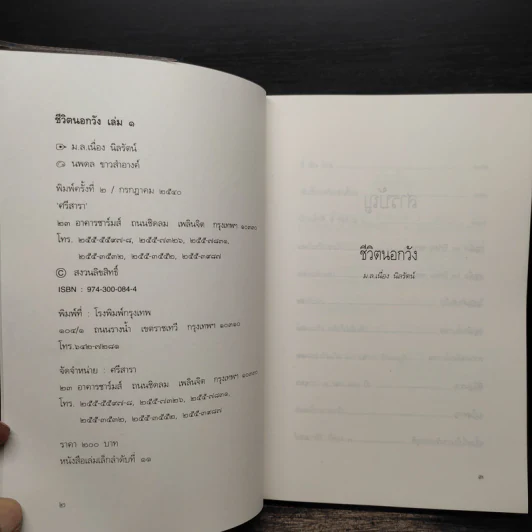 ชีวิตนอกวัง เล่ม ๑
ม.ล.เนื่อง นิลรัตน์
นพดล ขาวสำอางค์
พิมพ์ครั้งที่ ๒ / กรกฎาคม ๒๕๔๐
'ศรีสารา'
๒๓ อาคารชาร์มส์ ถนนชิดลม เพลินจิต กรุงเทพฯ ๑๐๓๓๐
โทร. ๒๕๕-๕๕๙๗-๘, ๒๕๕-๗๓๒๖, ๒๕๕-๗๘๓๑,
๒๕๕-๓๕๓๒, ๒๕๕-๓๕๕๒, ๒๕๕-๓๙๘๗
© สงวนลิขสิทธิ์
ISBN : 974-300-084-4
พิมพ์ที่ : โรงพิมพ์กรุงเทพ
๑๐๔/๑ ถนนรางน้ำ เขตราชเทวี กรุงเทพฯ ๑๐๓๑๐
โทร.๖๔๒-๗๒๘๑
จัดจำหน่าย : ศรีสารา
๒๓ อาคารชาร์มส์ ถนนชิดลม เพลินจิต กรุงเทพฯ ๑๐๓๓๐
โทร. ๒๕๕-๕๕๙๗-๘, ๒๕๕-๗๓๒๖, ๒๕๕-๗๘๓๑,
๒๕๕-๓๕๓๒, ๒๕๕-๓๕๕๒, ๒๕๕-๓๙๘๗
ราคา ๒๐๐ บาท
หนังสือเล่มเล็กลำดับที่ ๑๑
๒
ชีวิตนอกวัง
ม.ล.เนื่อง นิลรัตน์
๓